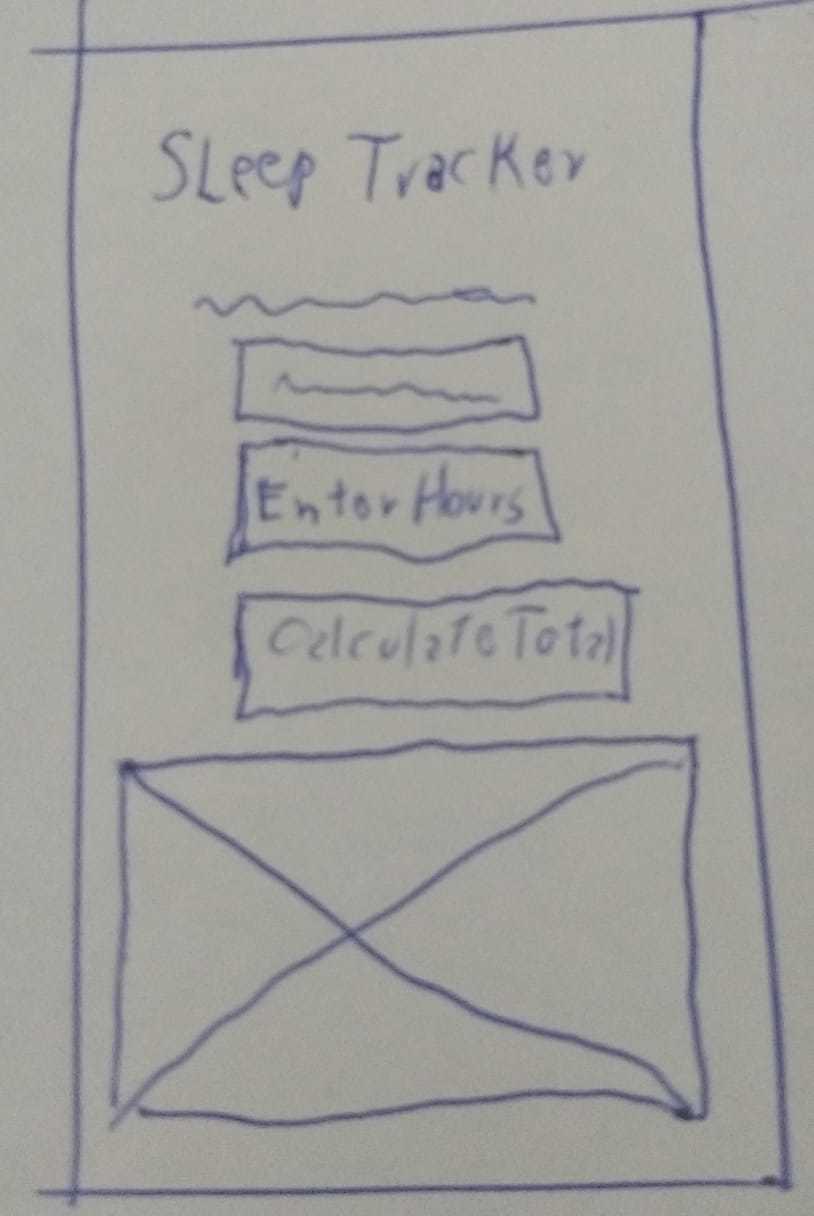 Sleep Tracker
Enter Hours
Calculate Total